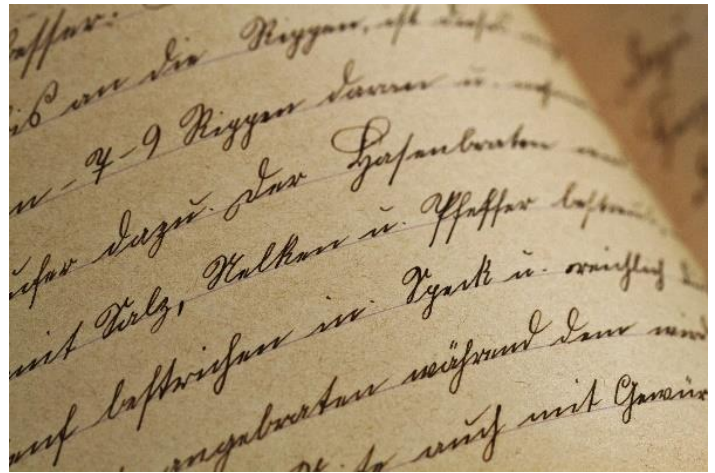 besser:
bis an die Rippen, ist dieser
n - 7 - 9 Rippen daran u.
dazu. Der Hasenbraten
mit Salz, Nelken u. Pfeffer bestreut,
Senf bestrichen in Speck u. reichlich
angebraten während dem wird
auch mit Gewür